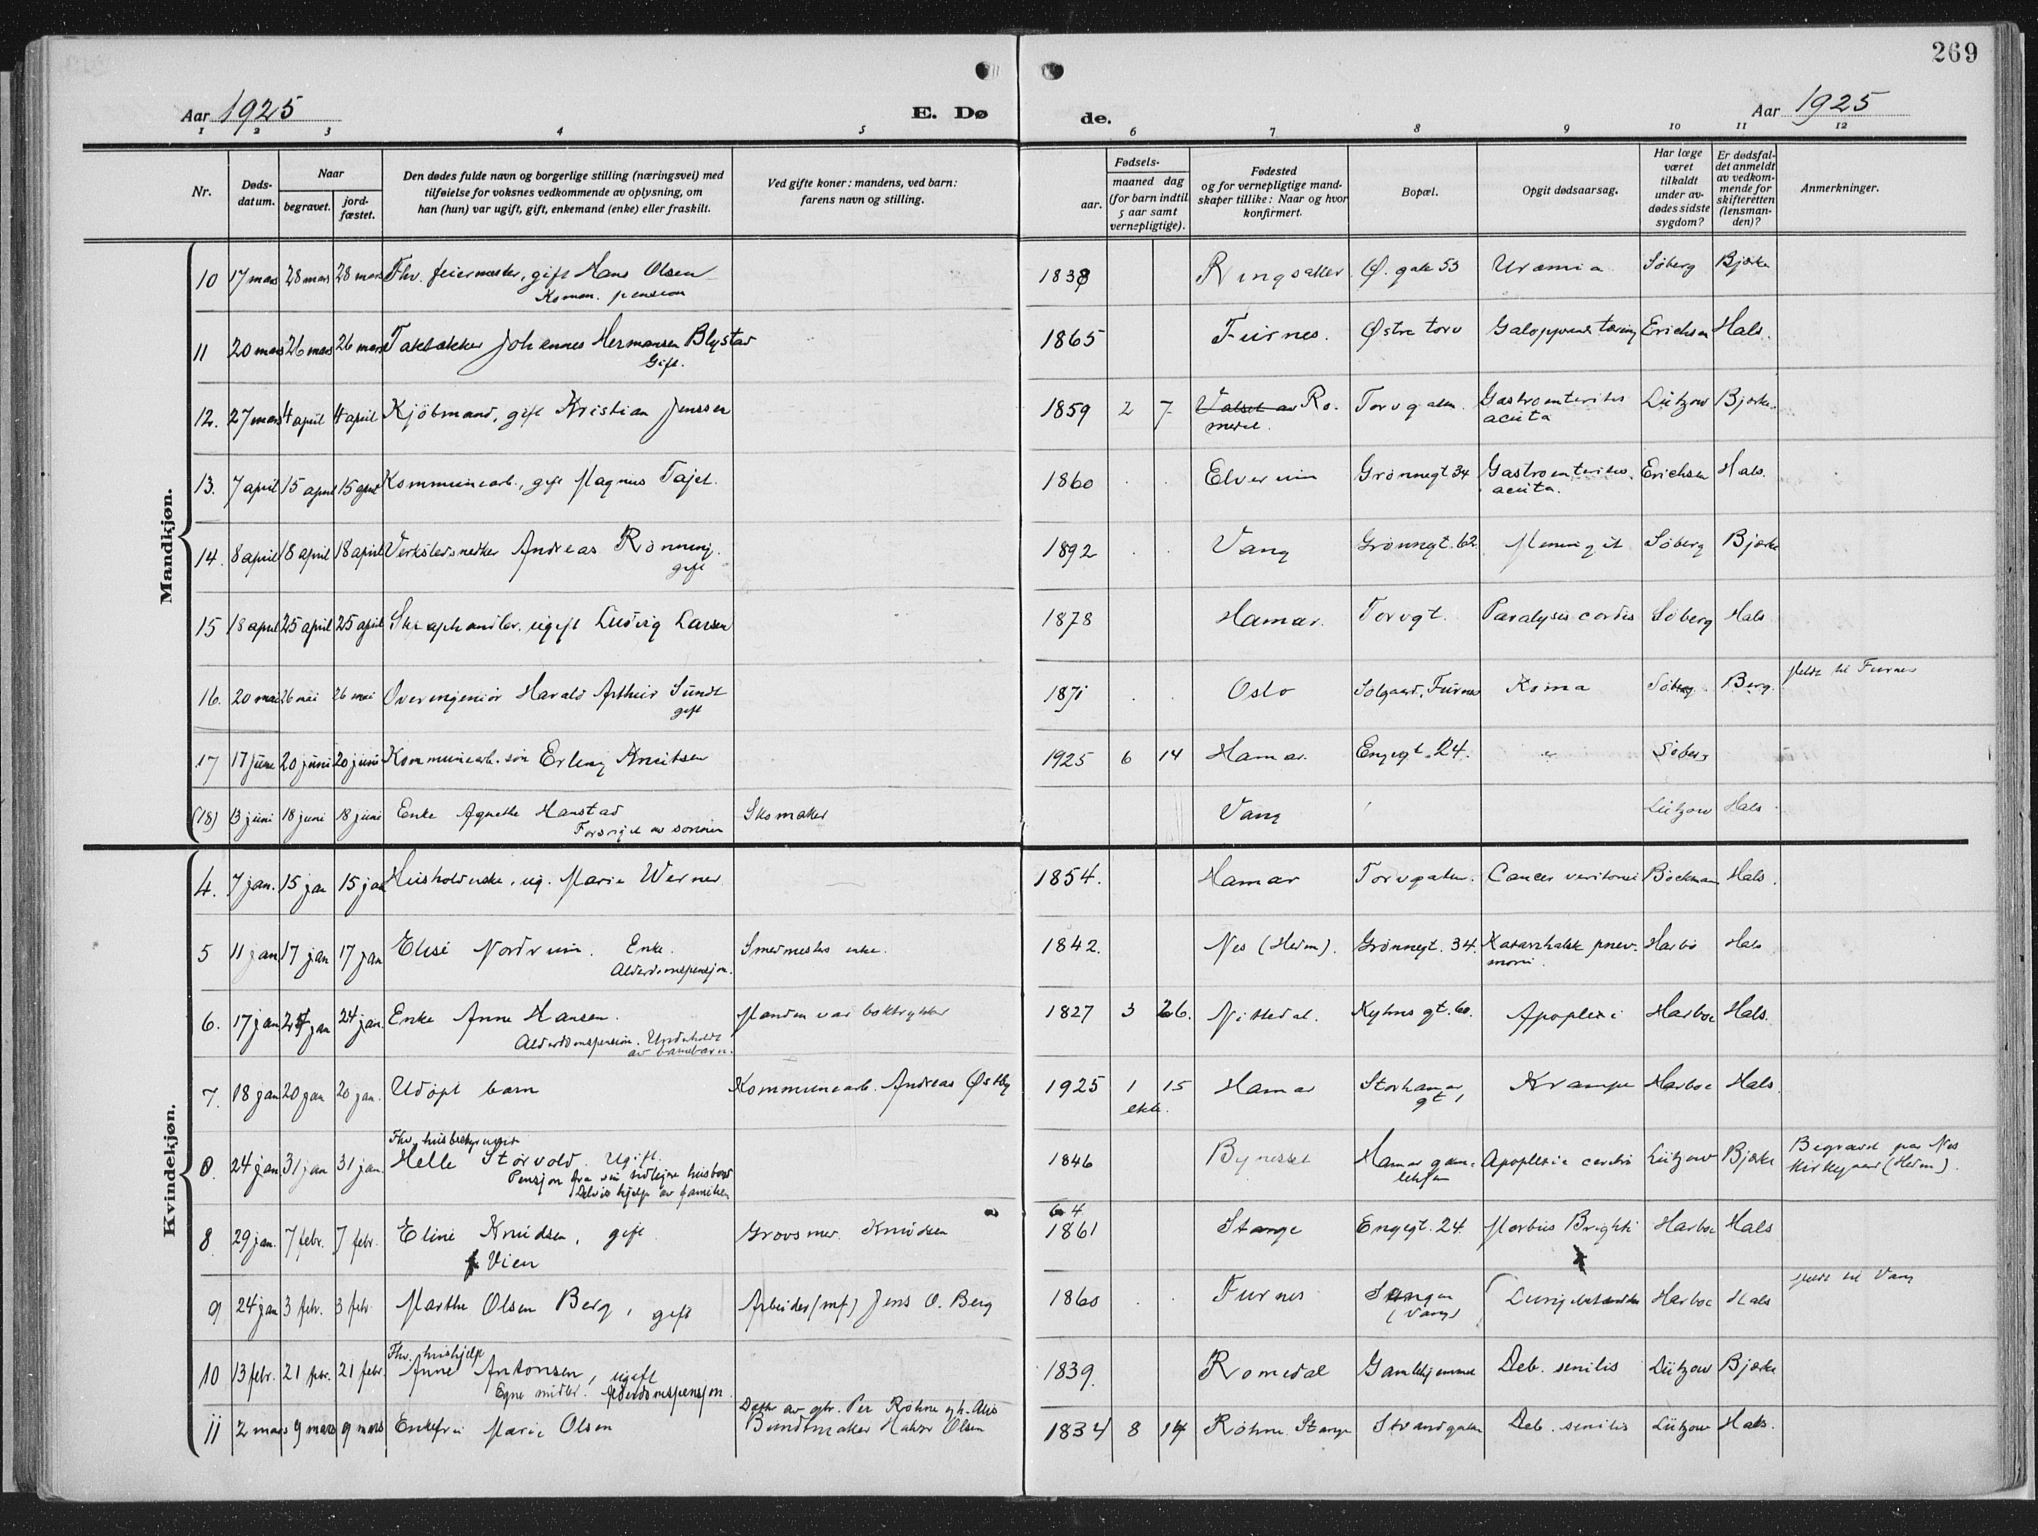 269
Aar 1925
E. Dø
de.
Aar 1925
1 2 3 4 5 6 7 8 9 10 11 12
Nr.
Døds-
datum.
Naar
begravet.
jord-
fæstet.
Den dødes fulde navn og borgerlige stilling (næringsvei) med
tilføielse for voksnes vedkommende av oplysning, om
han (hun) var ugift, gift, enkemand (enke) eller fraskilt.
Ved gifte koner: mandens, ved barn:
farens navn og stilling.
Fødsels-
aar.
maaned dag
(for barn indtil
5 aar samt
vernepligtige).
Fødested
og for vernepligtige mand-
skaper tillike: Naar og hvor
konfirmert.
Bopæl.
Opgit dødsaarsag.
Har læge
været
tilkaldt
under av-
dødes sidste
sygdom?
Er dødsfal-
det anmeldt
av vedkom-
mende for
skifteretten
(lensman-
den)?
Anmerkninger.
Mandkjøn.
10 17 mars 28 mars 28 mars Fhv. feiermester, gift Hans Olsen 1838 Ringsaker Ø. gate 53 Uræmia Søberg Bjerke
Komm. pension
11 20 mars 26 mars 26 mars Taktækker Johennes Hermansen Blystad 1865 Furnes. Østre torv Galopperende tæring Erichsen Hals.
Gift.
12. 27 mars 4 april 4 april Kjøbmand, gift Kristian Jenssen 1859 2 7 Valset av Ro- Torvgaten. Gastroenteritis Lützow Bjerke.
medal. acuta
13. 7 april 15 april 15 april Kommunearb., gift Magnus Tajet. 1860 Elverum Grønnegt 34 Gastroenteritis. Erichsen Hals.
acuta.
14. 8 april 18 april 18 april Verkstedsnedker Andreas Rønning. 1892 Vang Grønnegt. 62. Meningit Søberg Bjerke
gift
15 18 april 25 april 25 april Skraphandler, ugift Ludvig Larsen 1878 Hamar. Torvgt. Paralysis cordis Søberg Hals
16. 20 mai 26 mai 26 mai Overingeniør Harald Arthur Sundt 1871 Oslo Solgaard, Furnes Koma Søberg. Berg. Meldt til Furnes
gift
17 17 june 20 juni 20 juni Kommunearb. søn Erling Knutsen 1925 6 14 Hamar. Engegt. 24. " Søberg
(18) 13 juni 18 juni 18 juni Enke Agnethe Hanstad Skomaker Vang Lützow Hals
Forsørget av sønnen
Kvindekjøn.
4. 7 jan. 15 jan 15 jan Husholderske, ug. Marie Werner 1854. Hamar Torvgaten. Cancer peritonei Bockman Hals.
5 11 jan 17 jan 17 jan Elise Nordrum. Enke. Smedmesters enke. 1842. Nes (Hedm). Grønnegt. 34. Katarrhalsk pnev- Harbo Hals
Alderdomspensjon. moni.
6. 17 jan 24 jan 24 jan. Enke Anne Hansen. Manden var boktrykker 1827 3 26. Nittedal. Kyhns gt. 60. Apoplexi Harboe Hals.
Alderdomspension. Underholdt
av barnebarn.
7. 18 jan 20 jan 20 jan. Udøpt barn Kommunearb. Andreas Østby 1925 1 15 Hamar Storhamar Krampe Harboe Hals.
ekte. gt 1
Fhv. husbestyrerinde
8. 24 jan 31 jan 31 jan. Helle Størvold. Ugift. 1846 Bynesset Hamar gam- Apoplexia cerebri Lützow Bjerke Begravet paa Nes
Pensjon fra sin tidligere husbond lehjem Kirkegaard (Hedm).
Delvis hjelp av familien
64
8. 29 jan. 7 febr. 7 febr. Eline Knudsen, gift Grovsmed Knudsen 1861 Stange Engegt. 24. Morbus Brighti Harboe Hals
f Vien
9 24 jan 3 febr. 3 febr. Marthe Olsen Berg, gift Arbeider (mf) Jens O. Berg 1860 Furnes (Vang) Lungebetændelse Harboe Hals Meldt til Vang
Fhv. hushjelp
10 13 febr. 21 febr. 21 febr. Anne Antonsen, ugift 1839. Romedal Gamlehjemmet Deb. senilis Lützow Bjerke
Egne midler. Alderdomspensjon.
Datter av gbr. Per Røhne
11 2 mars 9 mars 9 mars Enkefru Marie Olsen Bundtmaker Halvor Olsen 1834 8 14 Røhne. Stange Strandgaten Deb. senilis Lützow Hals.